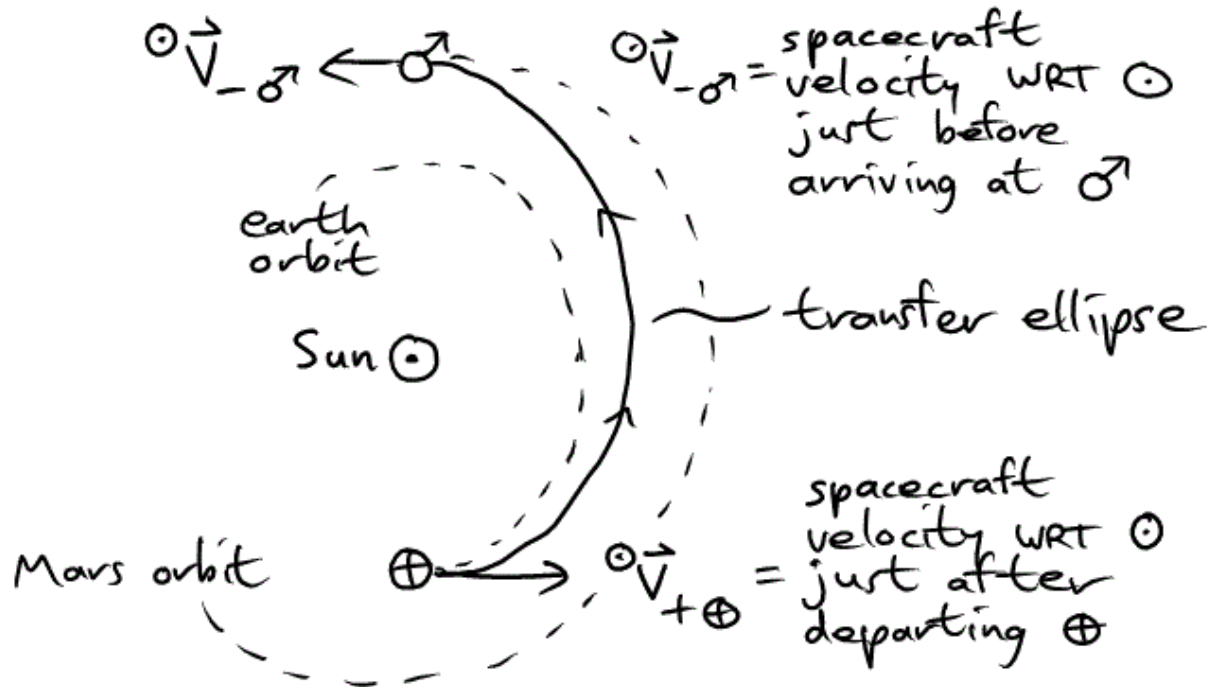 ☉V⃗₋♂
☉V⃗₋♂ = spacecraft
velocity WRT ☉
just before
arriving at ♂
earth
orbit
Sun ☉
transfer ellipse
Mars orbit
⊕
☉V⃗₊⊕ = spacecraft
velocity WRT ☉
just after
departing ⊕
♂